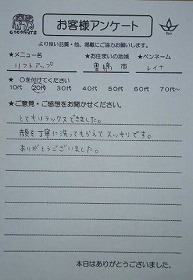 お客様アンケート
より良い品質・他、掲載にご協力お願いします。
★メニュー名 ★お住まいの地域 ★ペンネーム
リフトアップ 豊橋 市 レイナ
★ ○を付けてください
10代 20代 30代 40代 50代 60代 70代～
★ご意見・ご感想をお聞かせください。
とてもリラックスできました。
顔を丁寧に洗ってもらえてスッキリです。
ありがとうございました。
本日はありがとうございました。